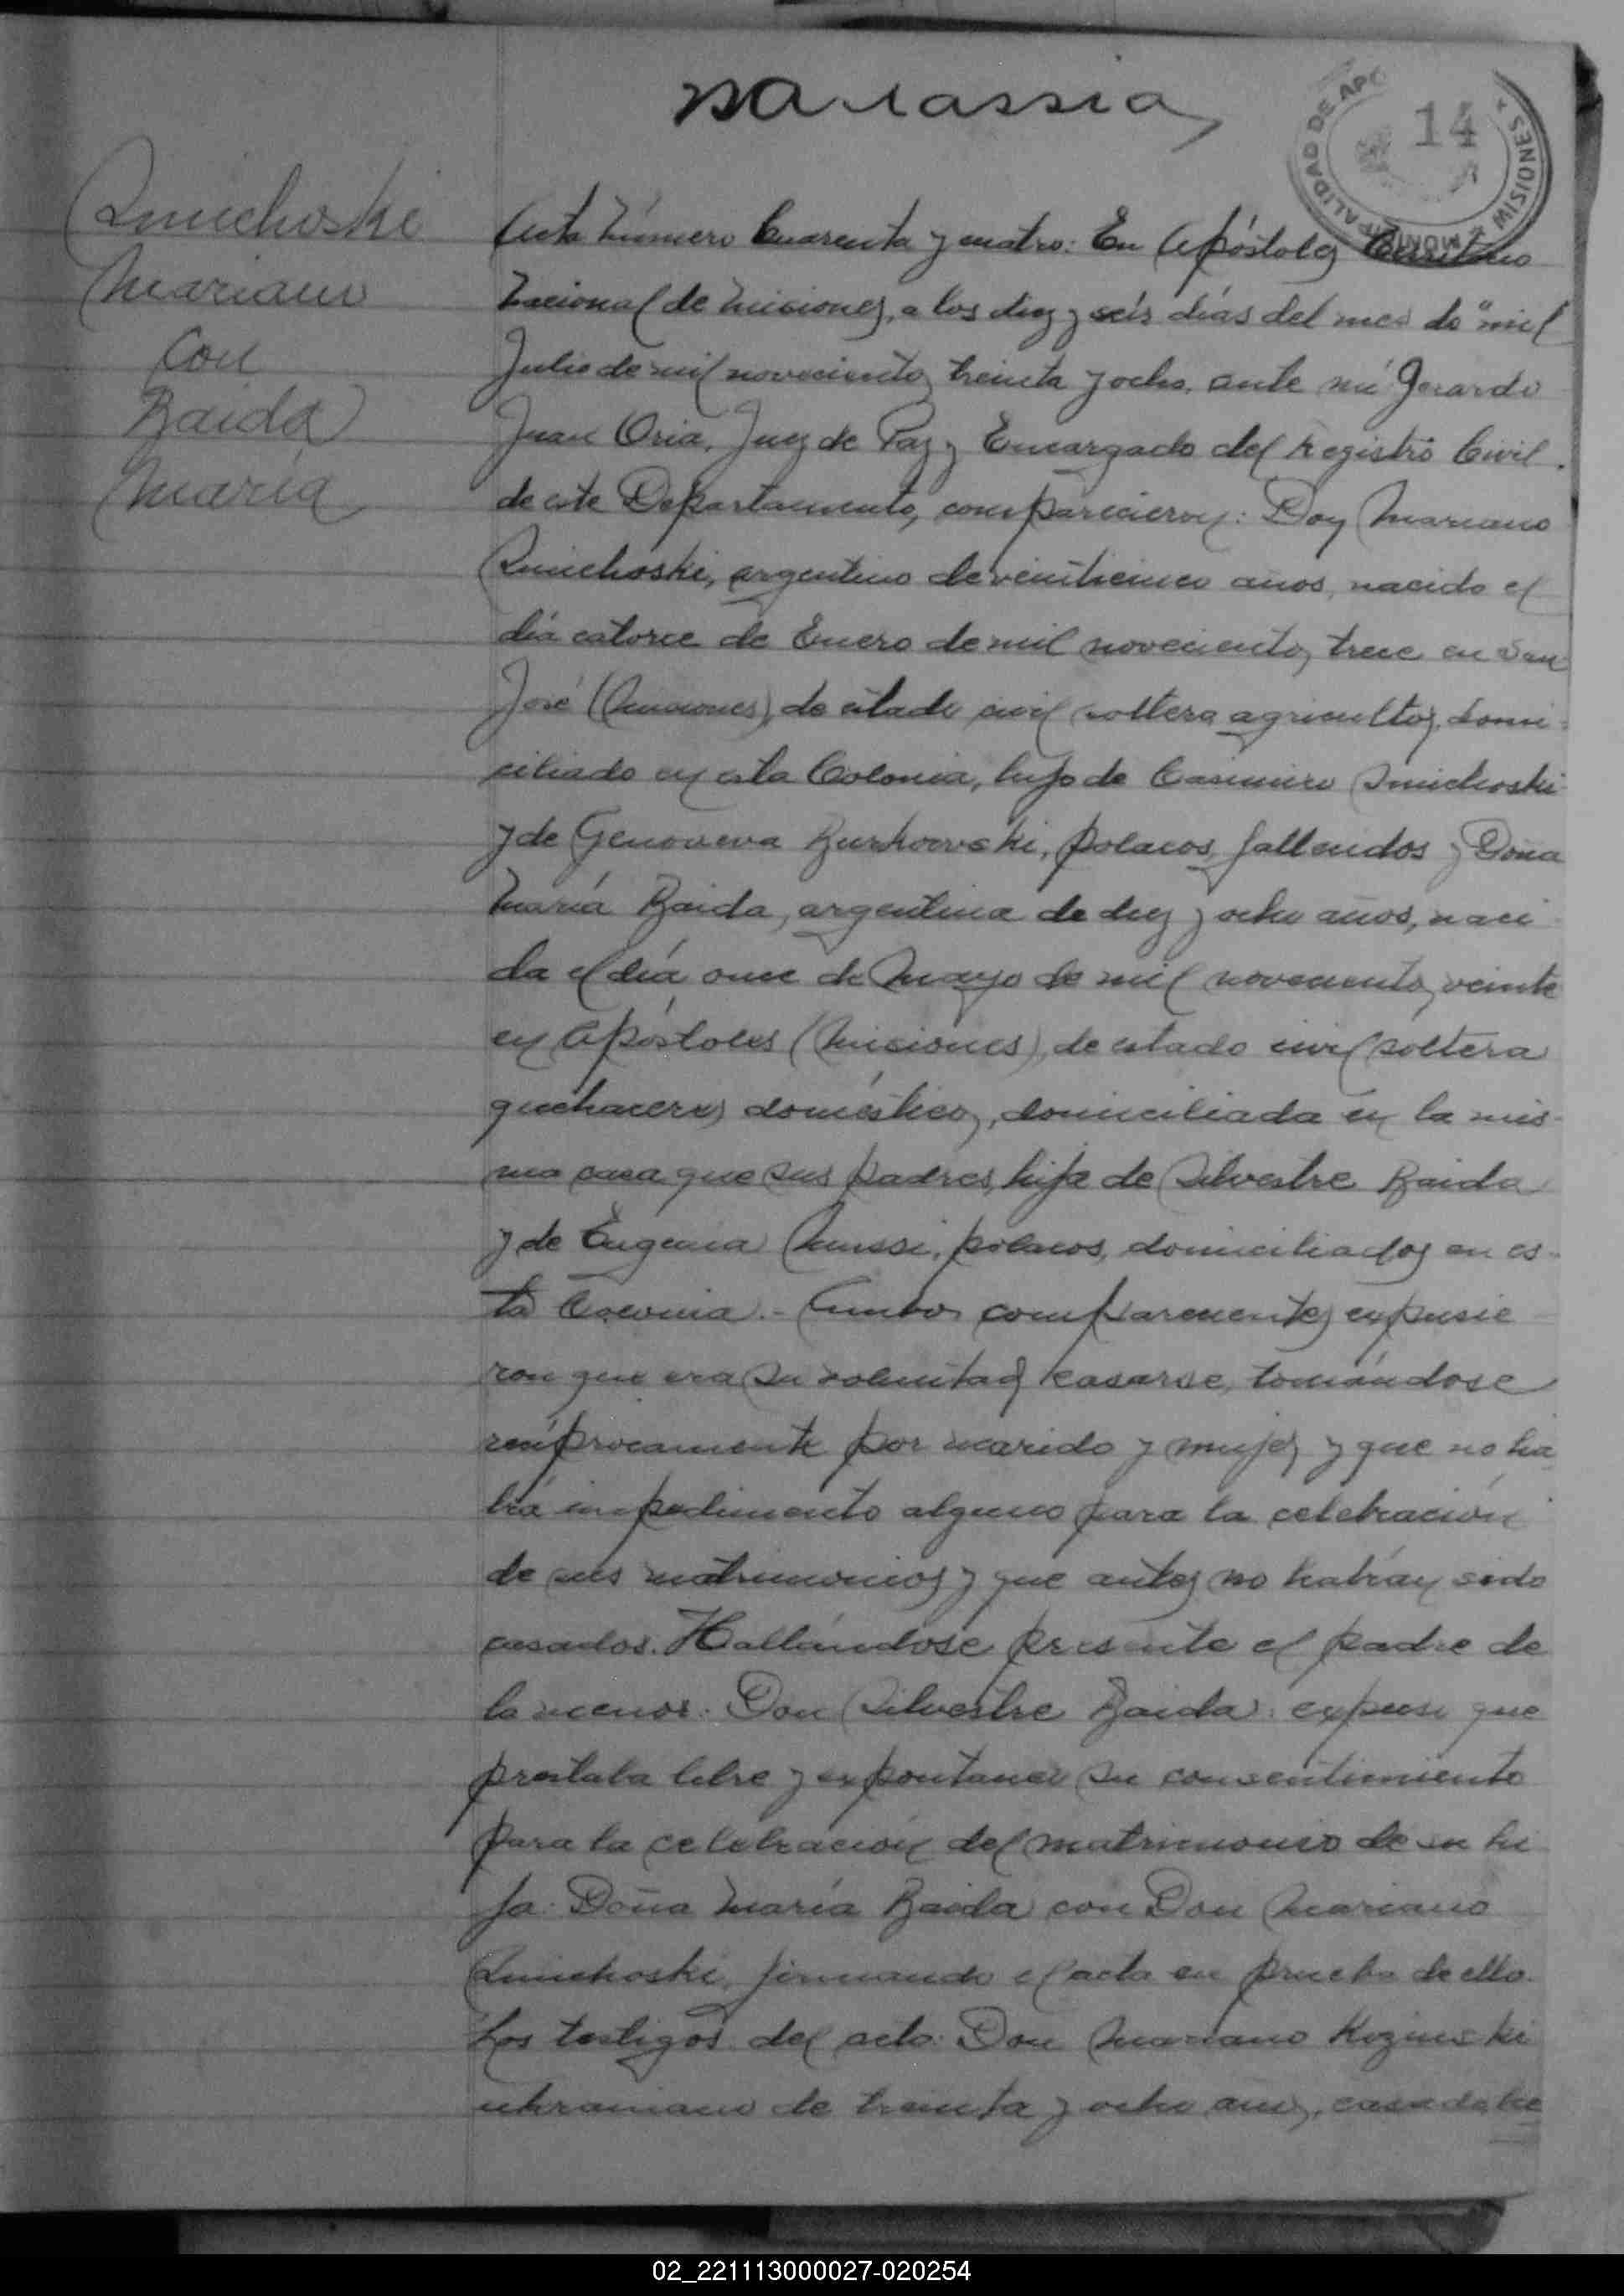 MUNICIPALIDAD DE APO
MISIONES
14
Smichoski
Mariano
Con
Baida
María
Acta Número Cuarenta y cuatro: En Apóstoles Territorio
Nacional de Misiones, a los diez y seis días del mes de "mil
Julio de mil novecientos treinta y ocho, ante mí Gerardo
Juan Oria, Juez de Paz y Encargado del Registro Civil.
de este Departamento, comparecieron: Don Mariano
Smichoski, argentino de veinticinco años, nacido el
día catorce de Enero de mil novecientos trece en San
José (Misiones), de estado civil soltero agricultor, domi-
ciliado en esta Colonia, hijo de Casimiro Smichoski
y de Genoveva, polacos, fallecidos y Doña
María Baida, argentina de diez y ocho años, naci
da el día once de Mayo de mil novecientos veinte
en Apóstoles (Misiones), de estado civil soltera
quehaceres domésticos, domiciliada en la mis-
ma casa que sus padres, hija de Silvestre Baida
y de Eugenia, polacos, domiciliados en es-
ta Colonia.- Ambos comparecientes expusie
ron que era su voluntad casarse, tomándose
recíprocamente por marido y mujer y que no ha
bía impedimento alguno para la celebración
de sus matrimonios y que antes no habían sido
casados. Hallándose presente el padre de
la menor: Don Silvestre Baida: expuso que
prestaba libre y expontaneo su consentimiento
para la celebración del matrimonio de su hi
ja: Doña María Baida con Don Mariano
Smichoski, firmando el acta en prueba de ello.
Los testigos del acto: Don Mariano Kozinski
ukraniano de treinta y ocho años, casado,
02_221113000027-020254